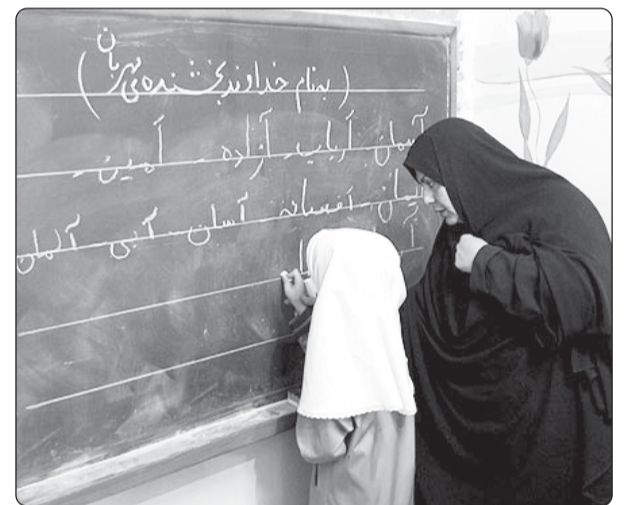 ( به نام خداوند بخشنده‌ی مهربان )
آسمان - ارباب - آزاده - امین -
ایمان - افسانه - آسان - آبی - آلمان
آ
ا